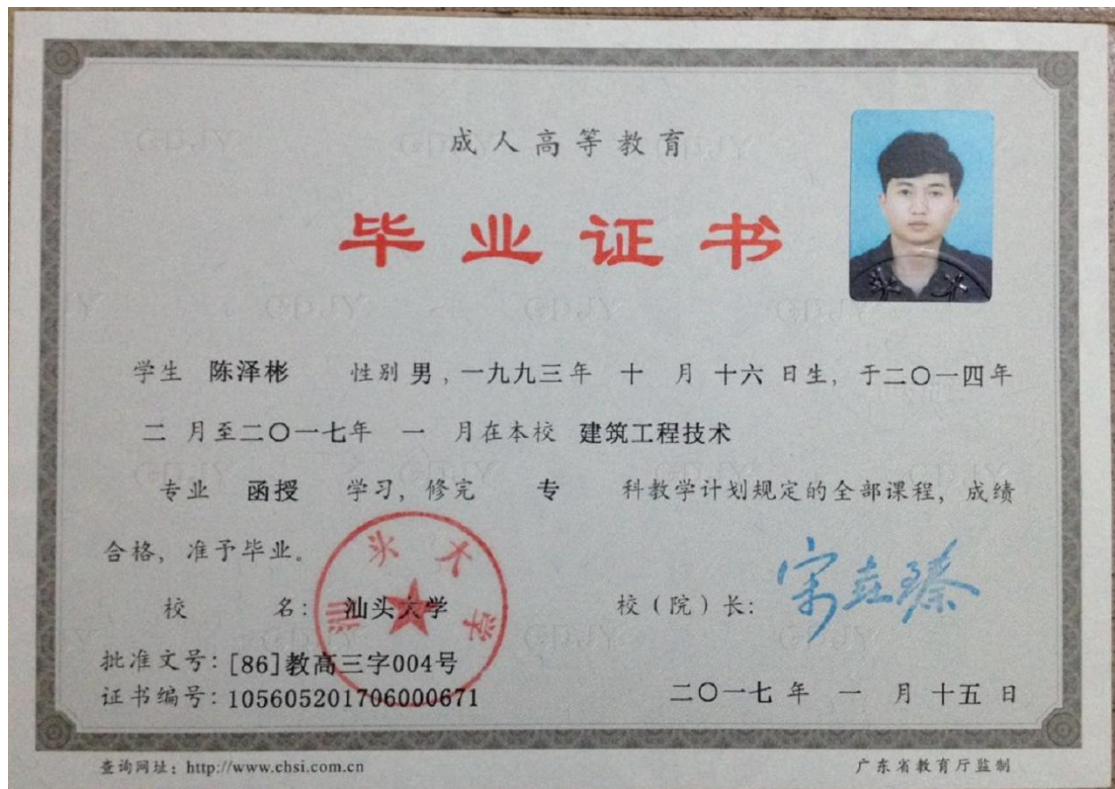 成人高等教育
毕业证书
学生 陈泽彬 性别 男 , 一九九三年 十 月 十六 日生, 于二〇一四年
二 月至二〇一七年 一 月在本校 建筑工程技术
专业 函授 学习, 修完 专 科教学计划规定的全部课程, 成绩
合格, 准予毕业。
校 名: 汕头大学
汕头大学
校(院)长:
批准文号: [86]教高三字004号
证书编号: 105605201706000671
二〇一七 年 一 月 十五 日
查询网址: http://www.chsi.com.cn
广东省教育厅监制
GDJY
GDJY
GDJY